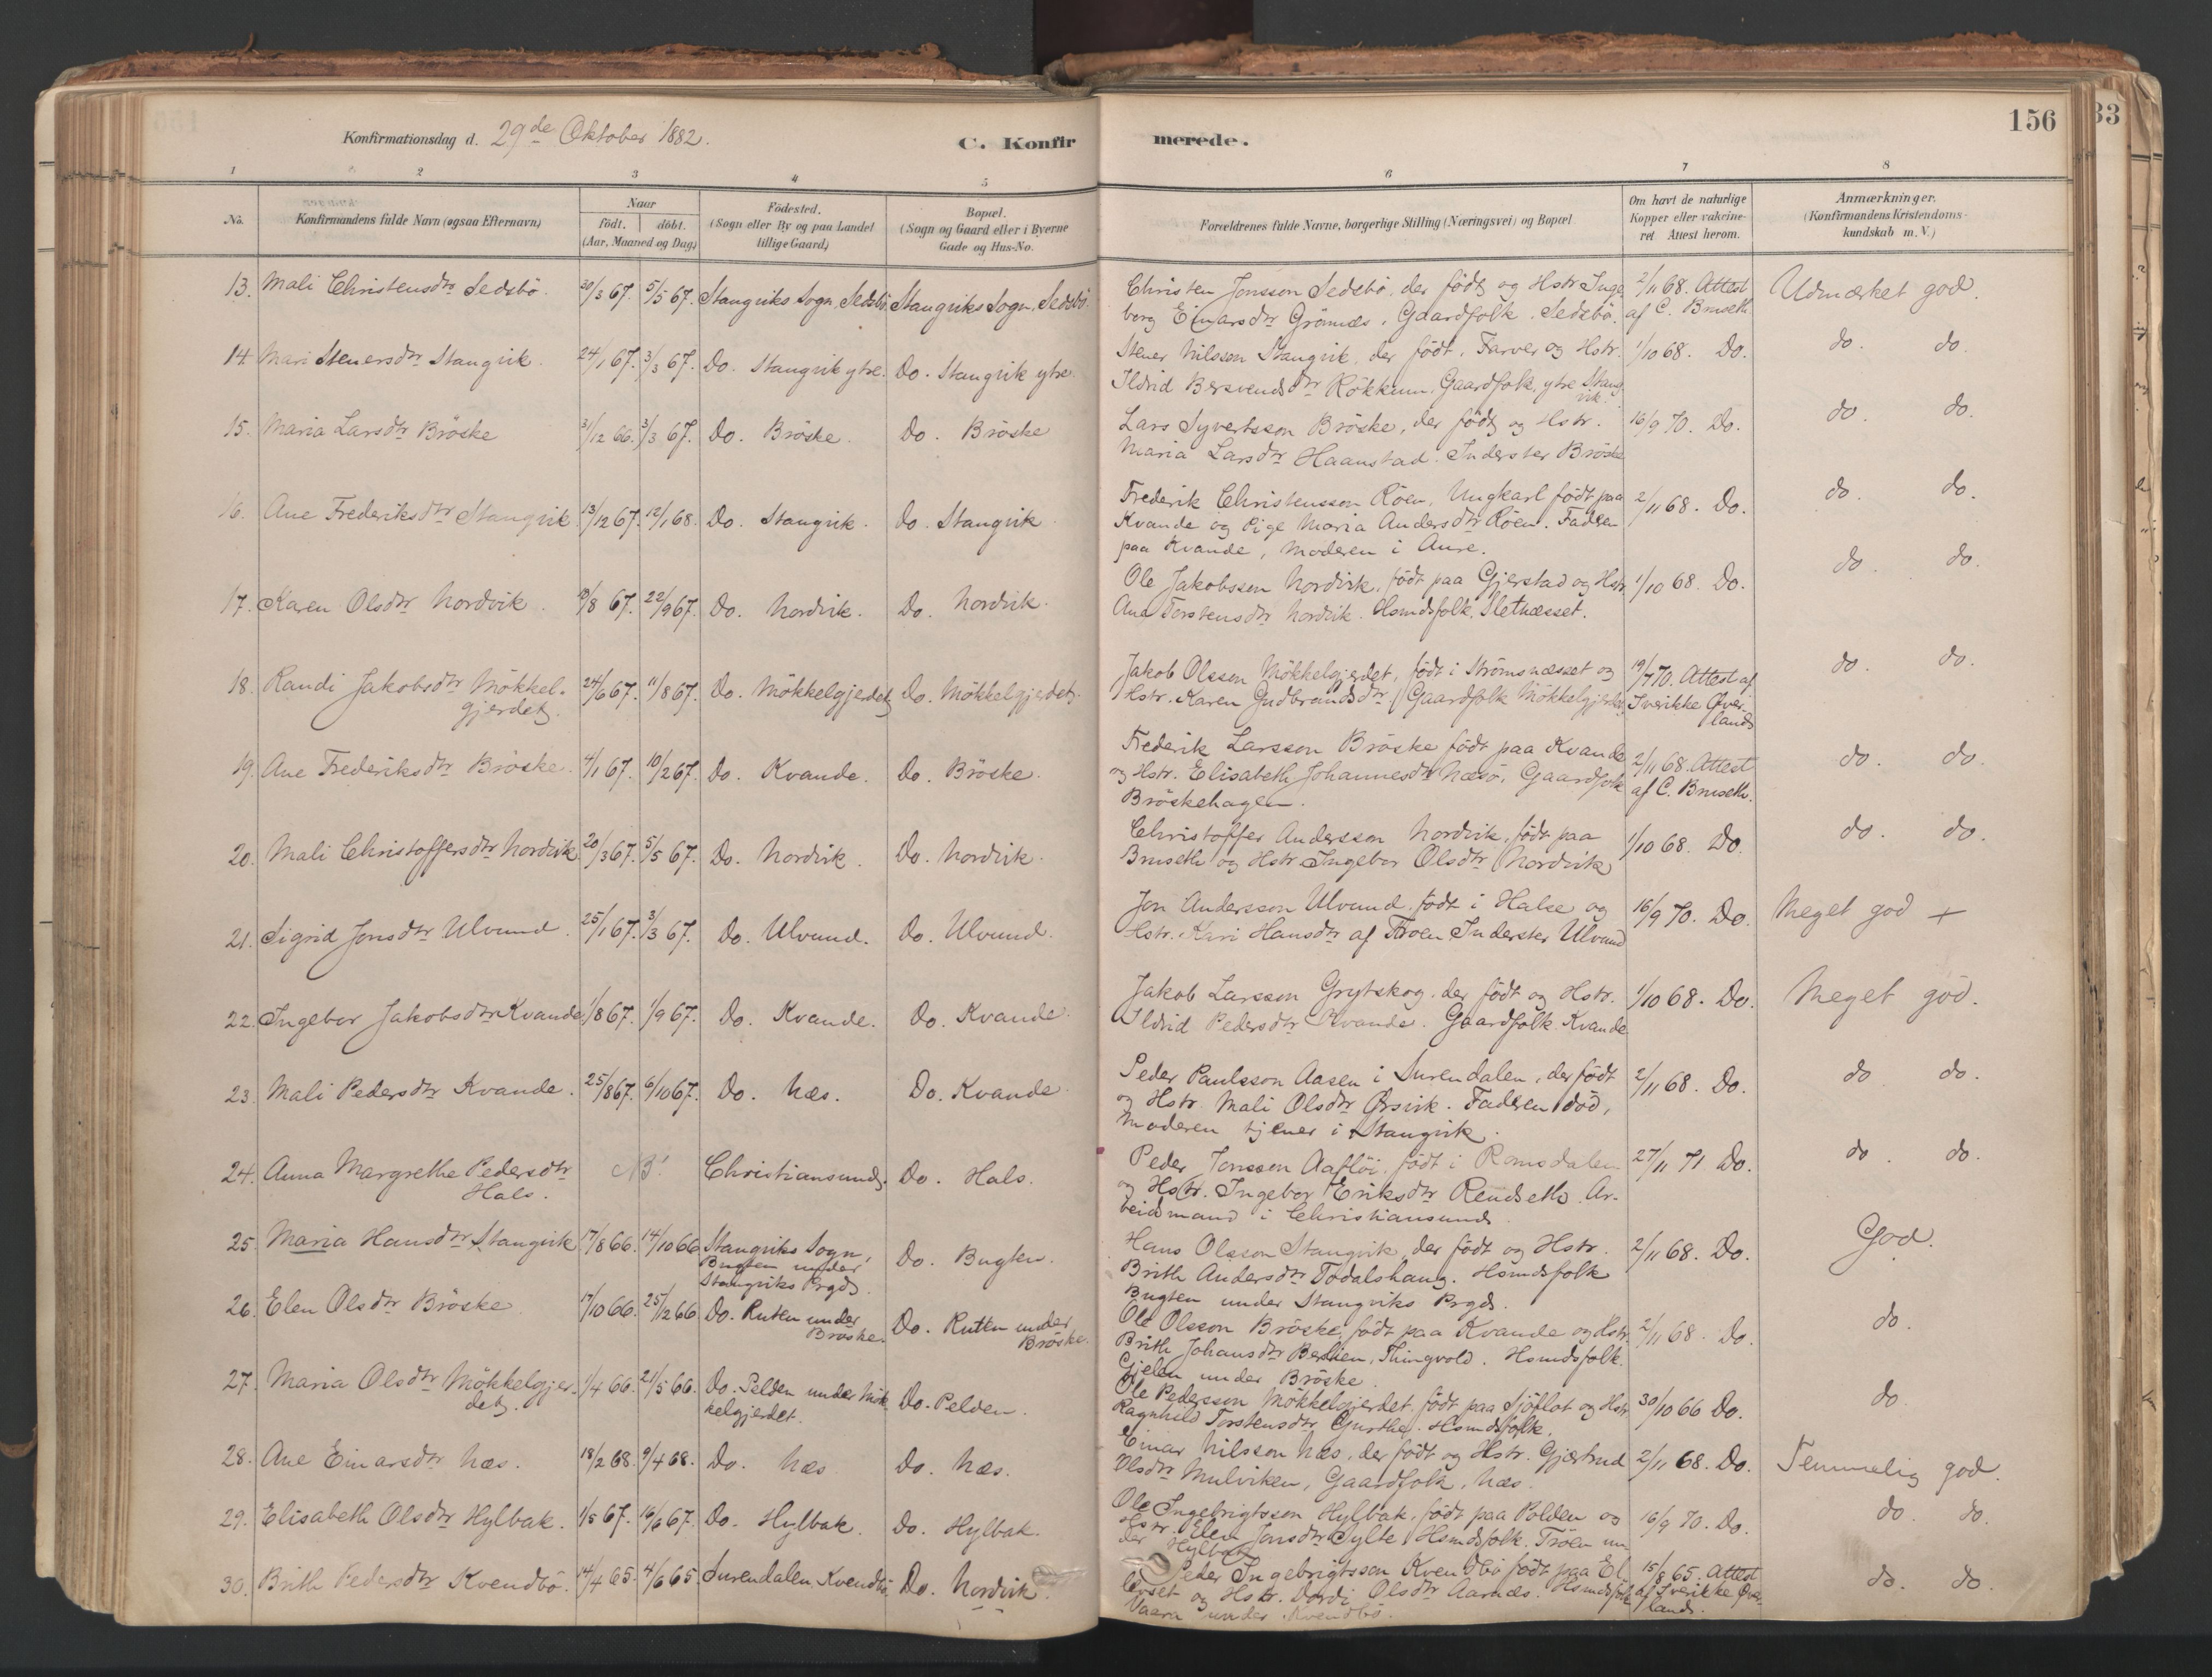 156
33
Konfirmationsdag d. 29de Oktober 1882.
C. Konfirmerede.
1 2 3 4 5 6 7 8
No.
Konfirmandens fulde Navn (ogsaa Efternavn)
Naar
født. døbt.
(Aar, Maaned og Dag)
Födested.
(Sogn eller By og paa Landet
tillige Gaard)
Bopæl.
(Sogn og Gaard eller i Byerne
Gade og Hus-No.
Forældrenes fulde Navne, borgerlige Stilling (Næringsvei) og Bopæl
Om havt de naturlige
Kopper eller vakcine-
ret Attest herom.
Anmærkninger.
(Konfirmandens Kristendoms-
kundskab m. V.)
13. Mali Christensdtr Sedsbö. 20/3 67. 5/5 67. Stangviks Sogn, Sedsbö. Stangviks Sogn, Sedsbö.
Christen Jonsson Sedsbö, der født og Hstr. Inge- 2/11 68. Attest Udmærket god.
borg Einarsdtr Grönnæs, Gaardfolk, Sedsbö. af C. Bruseth
14. Mari Stenersdtr Stangvik. 24/1 67. 3/3 67. Do. Stangvik ytre. Do. Stangvik ytre.
Stener Nilsson Stangvik, der født, Farver og Hstr. 1/10 68. Do. do. do.
Ildrid Bersvendsdtr Rökkum, Gaardfolk, ytre Stang
vik.
15. Maria Larsdtr Bröske 31/12 66. 3/3 67. Do. Bröske. Do. Bröske
Lars Syvertsson Bröske, der født og Hstr. 16/9 70. Do. do. do.
Maria Larsdtr Haanstad. Inderster Bröske
16. Ane Frederiksdtr Stangvik. 13/12 67. 12/1 68. Do. Stangvik. Do. Stangvik
Frederik Christensson Röen, Ungkarl født paa 2/11 68. Do. do. do.
Kvande og Pige Maria Andersdtr Röen. Faderen
paa Kvande, Moderen i Aure.
17. Karen Olsdtr Nordvik. /8 67. 22/9 67. Do. Nordvik. Do. Nordvik.
Ole Jakobsson Nordvik, født paa Gjerstad og Hstr. 1/10 68. Do. do. do.
Ane Torstensdtr Nordvik. Hsmdsfolk. Sletnæsset.
18. Randi Jakobsdtr Mökkel- 24/6 67. 11/8 67. Do. Mökkelgjerdet. Do. Mökkelgjerdet.
gjerdet.
Jakob Olsson Mökkelgjerdet, født i Strömsnæsset og 19/7 70. Attest af do. do.
Hstr. Karen Gudbrandsdtr, Gaardfolk Mökkelgjerdet. Sverikke Øver-
lands
19. Ane Frederiksdtr Bröske. 4/1 67. 10/2 67. Do. Kvande. Do. Bröske.
Frederik Larsson Bröske født paa Kvande 2/11 68. Attest do. do.
og Hstr. Elisabeth Johannesdtr Næsö. Gaardfolk af C. Bruseth.
Bröskehagen.
20. Mali Christoffersdtr Nordvik. 20/3 67. 5/5 67. Do. Nordvik. Do. Nordvik.
Christoffer Andersson Nordvik, født paa 1/10 68. Do. do. do.
Bruseth og Hstr. Ingebor Olsdtr Nordvik
21. Sigrid Jonsdtr Ulvund. 25/1 67. 3/3 67. Do. Ulvund. Do. Ulvund.
Jon Andersson Ulvund, født i Halse og 16/9 70. Do. Meget god +
Hstr. Kari Hansdtr af Troen Inderster Ulvund
22. Ingebor Jakobsdtr Kvande 1/8 67. 1/9 67. Do. Kvande. Do. Kvande.
Jakob Larsson Grytskog, der født og Hstr. 1/10 68. Do. Meget god.
Ildrid Pedersdtr Kvande. Gaardfolk Kvande
23. Mali Pedersdtr Kvande. 25/8 67. 6/10 67. Do. Næs. Do. Kvande
Peder Paulsson Aasen i Surendalen, der født 2/11 68. Do. do do.
og Hstr. Mali Olsdtr Ørsvik. Faderen död,
Moderen tjener i Stangvik.
24. Anna Margrethe Pedersdtr NB! Christiansund. Do. Hals.
Hals.
Peder Jonsson Aaflöi, født i Romsdalen 27/11 71 Do. do. do.
og Hstr. Ingebor Eriksdtr Rendseth. Ar-
beidsmand i Christiansund.
25. Maria Hansdtr Stangvik 17/8 66. 14/10 66 Stangviks Sogn, Do. Bugten.
Bugten under
Stangviks Prgd.
Hans Olsson Stangvik, der født og Hstr. 2/11 68. Do. God.
Brith Andersdtr Todalshaug. Hsmdsfolk
Bugten under Stangviks Prgd.
26. Elen Olsdtr Bröske. 17/10 66. 25/12 66. Do. Ruten under Do. Rutten under
Bröske. Bröske.
Ole Olsson Bröske, født paa Kvande og Hstr. 2/11 68. Do. do.
Brith Johansdtr Berslien, Thingvold. Hsmdsfolk.
Gjelen under Bröske.
27. Maria Olsdtr Mökkelgjer- 1/4 66. 21/5 66. Do. Pelden under Mök- Do. Pelden.
det. kelgjerdet.
Ole Pedersson Mökkelgjerdet, født paa Sjöflot og Hstr. 30/10 66 Do. do.
Ragnhild Torstensdtr. Hsmdsfolk.
28. Ane Einarsdtr Næs. 18/2 68. 9/4 68. Do. Næs Do. Næs.
Einar Nilsson Næs, der født og Hstr. Gjertrud 2/11 68. Do. Temmelig god.
Olsdtr Mulviken, Gaardfolk, Næs.
29. Elisabeth Olsdtr Hylbak. 1/5 67. 16/6 67. Do. Hylbak. Do. Hylbak.
Ole Ingebrigtsson Hylbak, født paa Polden og 16/9 70. Do. do. do.
Hstr. Elen Jonsdtr Sylte, Hsmdsfolk. Tröen un-
der Hylbak
30. Brith Pedersdtr Kvendbö. 14/4 65. 4/6 65. Surendalen, Kvendbö. Do. Nordvik.
Peder Ingebrigtsson Kvendbö født paa El- 15/8 65. Attest do. do.
levset og Hstr. Dordi Olsdtr Aarnæs. Hsmdsfolk af Sverikke Øver-
Vaara under Kvendbö. lands.